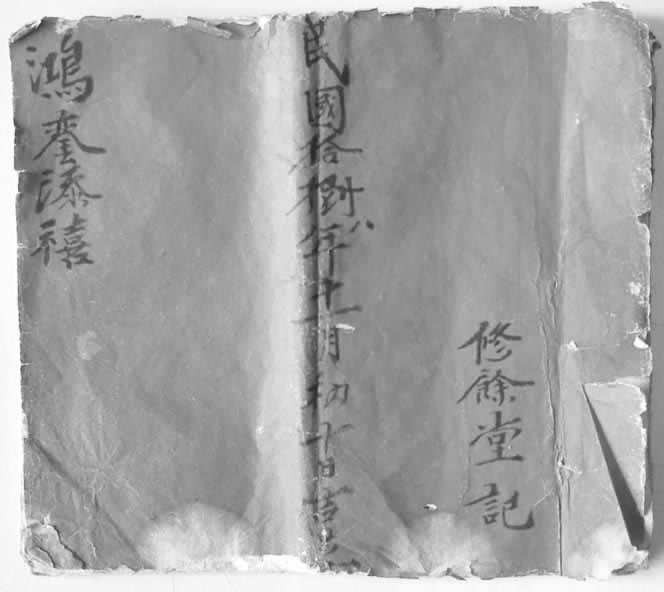 修餘堂記
民國拾捌八年十一月初十日吉
鴻銮添禧